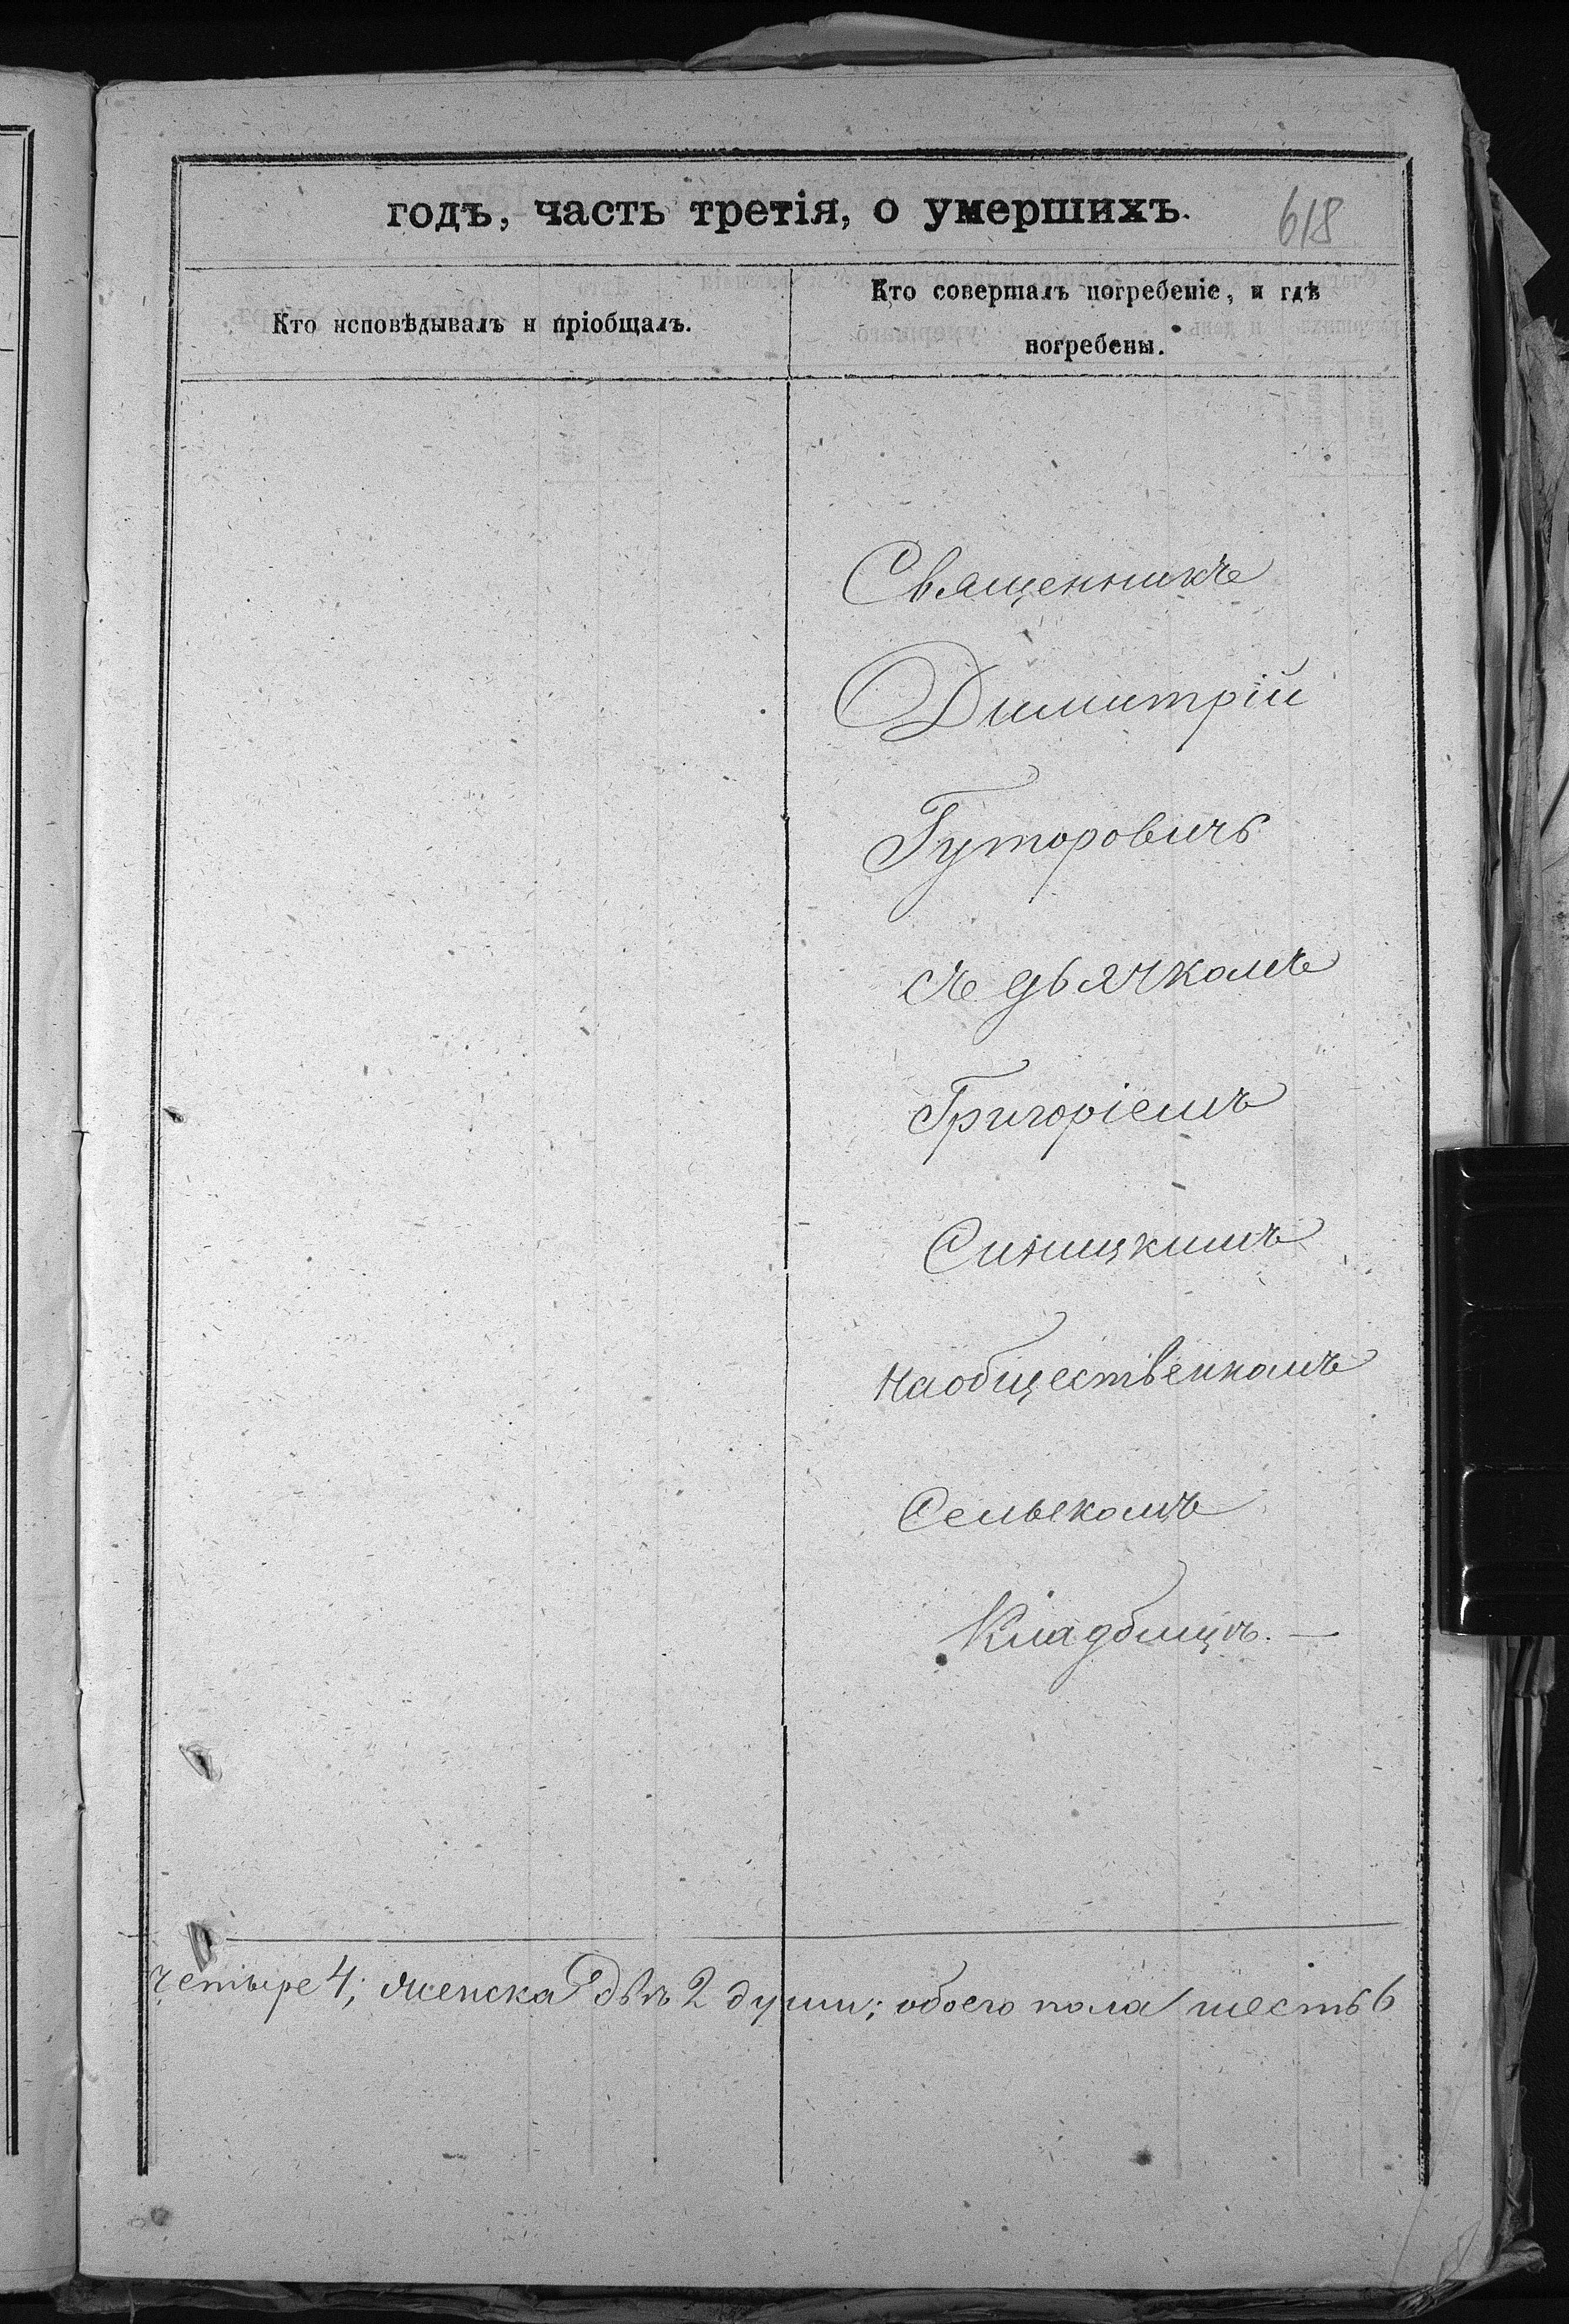 годъ, часть третія, о умершихъ.
618
Кто исповѣдывалъ и пріобщалъ.
Кто совершалъ погребеніе, и гдѣ
погребены.
Священникъ
Димитрій
Гуторовичъ
съ дьячкомъ
Григоріемъ
Синицкимъ
на общественномъ
Сельскомъ
Кладбищѣ. —
четыре 4; женска двѣ 2 души; обоего пола шесть 6